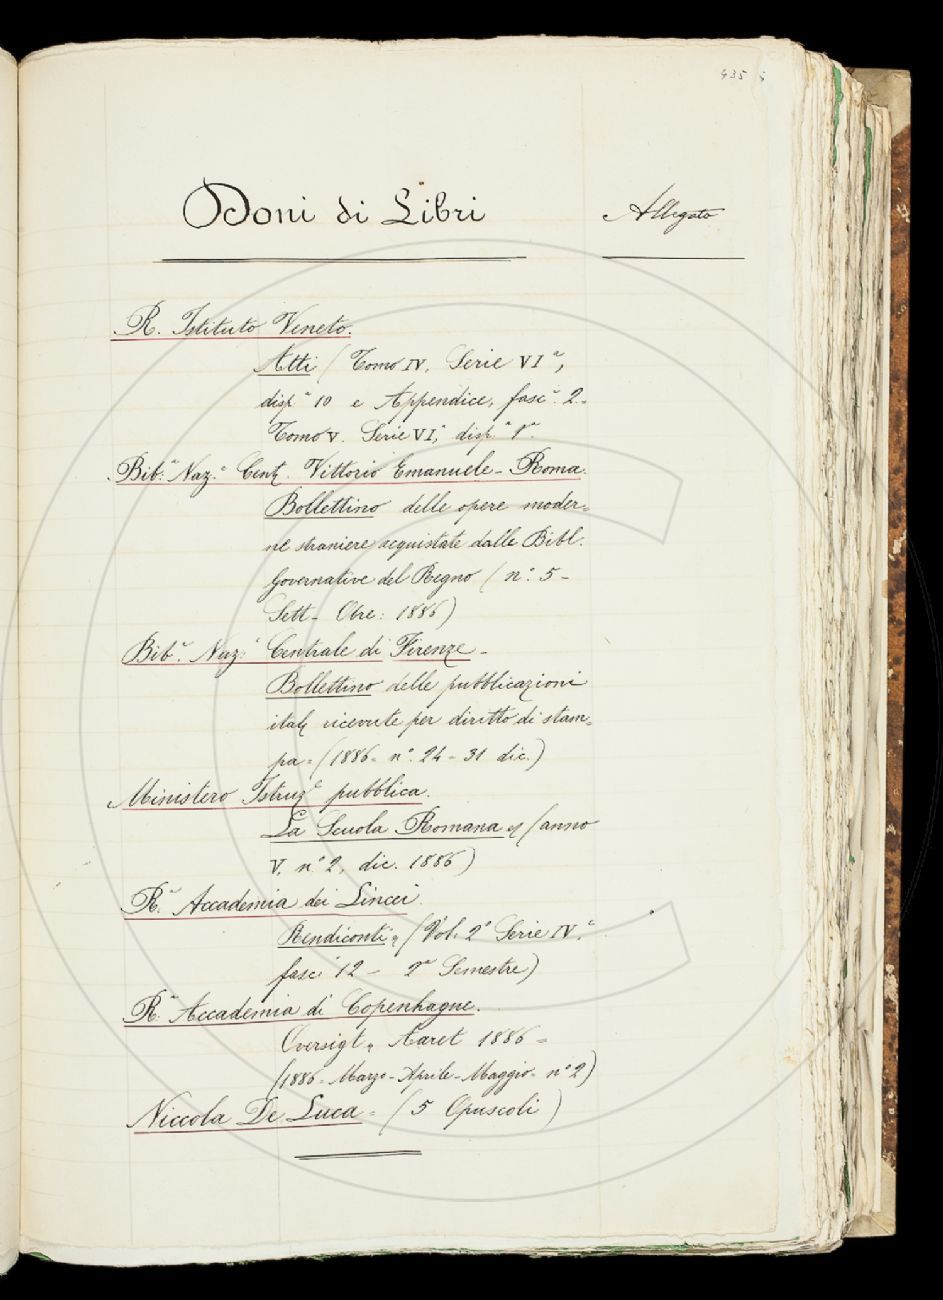 435
Doni di Libri
Allegato
R. Istituto Veneto.
Atti (Tomo IV. Serie VIª,
dispª 10 e Appendice, fascº. 2-
Tomo V. Serie VIª, disp.ª 1ª.
Bibª. Naz.ª Cent. Vittorio Emanuele - Roma.
Bollettino delle opere moder-
ne straniere acquistate dalle Bibl.
Governative del Regno (nº. 5 -
Sett. Obre: 1886)
Bibª. Nazª. Centrale di Firenze -
Bollettino delle pubblicazioni
ital. ricevute per diritto di stam-
pa - (1886 - nº. 24 - 31 dic.)
Ministero Istruzº pubblica.
La Scuola Romana (anno
V. nº 2, dic. 1886)
Rª. Accademia dei Lincei.
Rendiconti, (Vol. 2º Serie IV.ª
fascº 12 - 2º Semestre)
Rª. Accademia di Copenhagne.
Oversigt, Aaret 1886 -
(1886 - Marzo - Aprile - Maggio - nº 2)
Niccola De Luca - (5 Opuscoli)